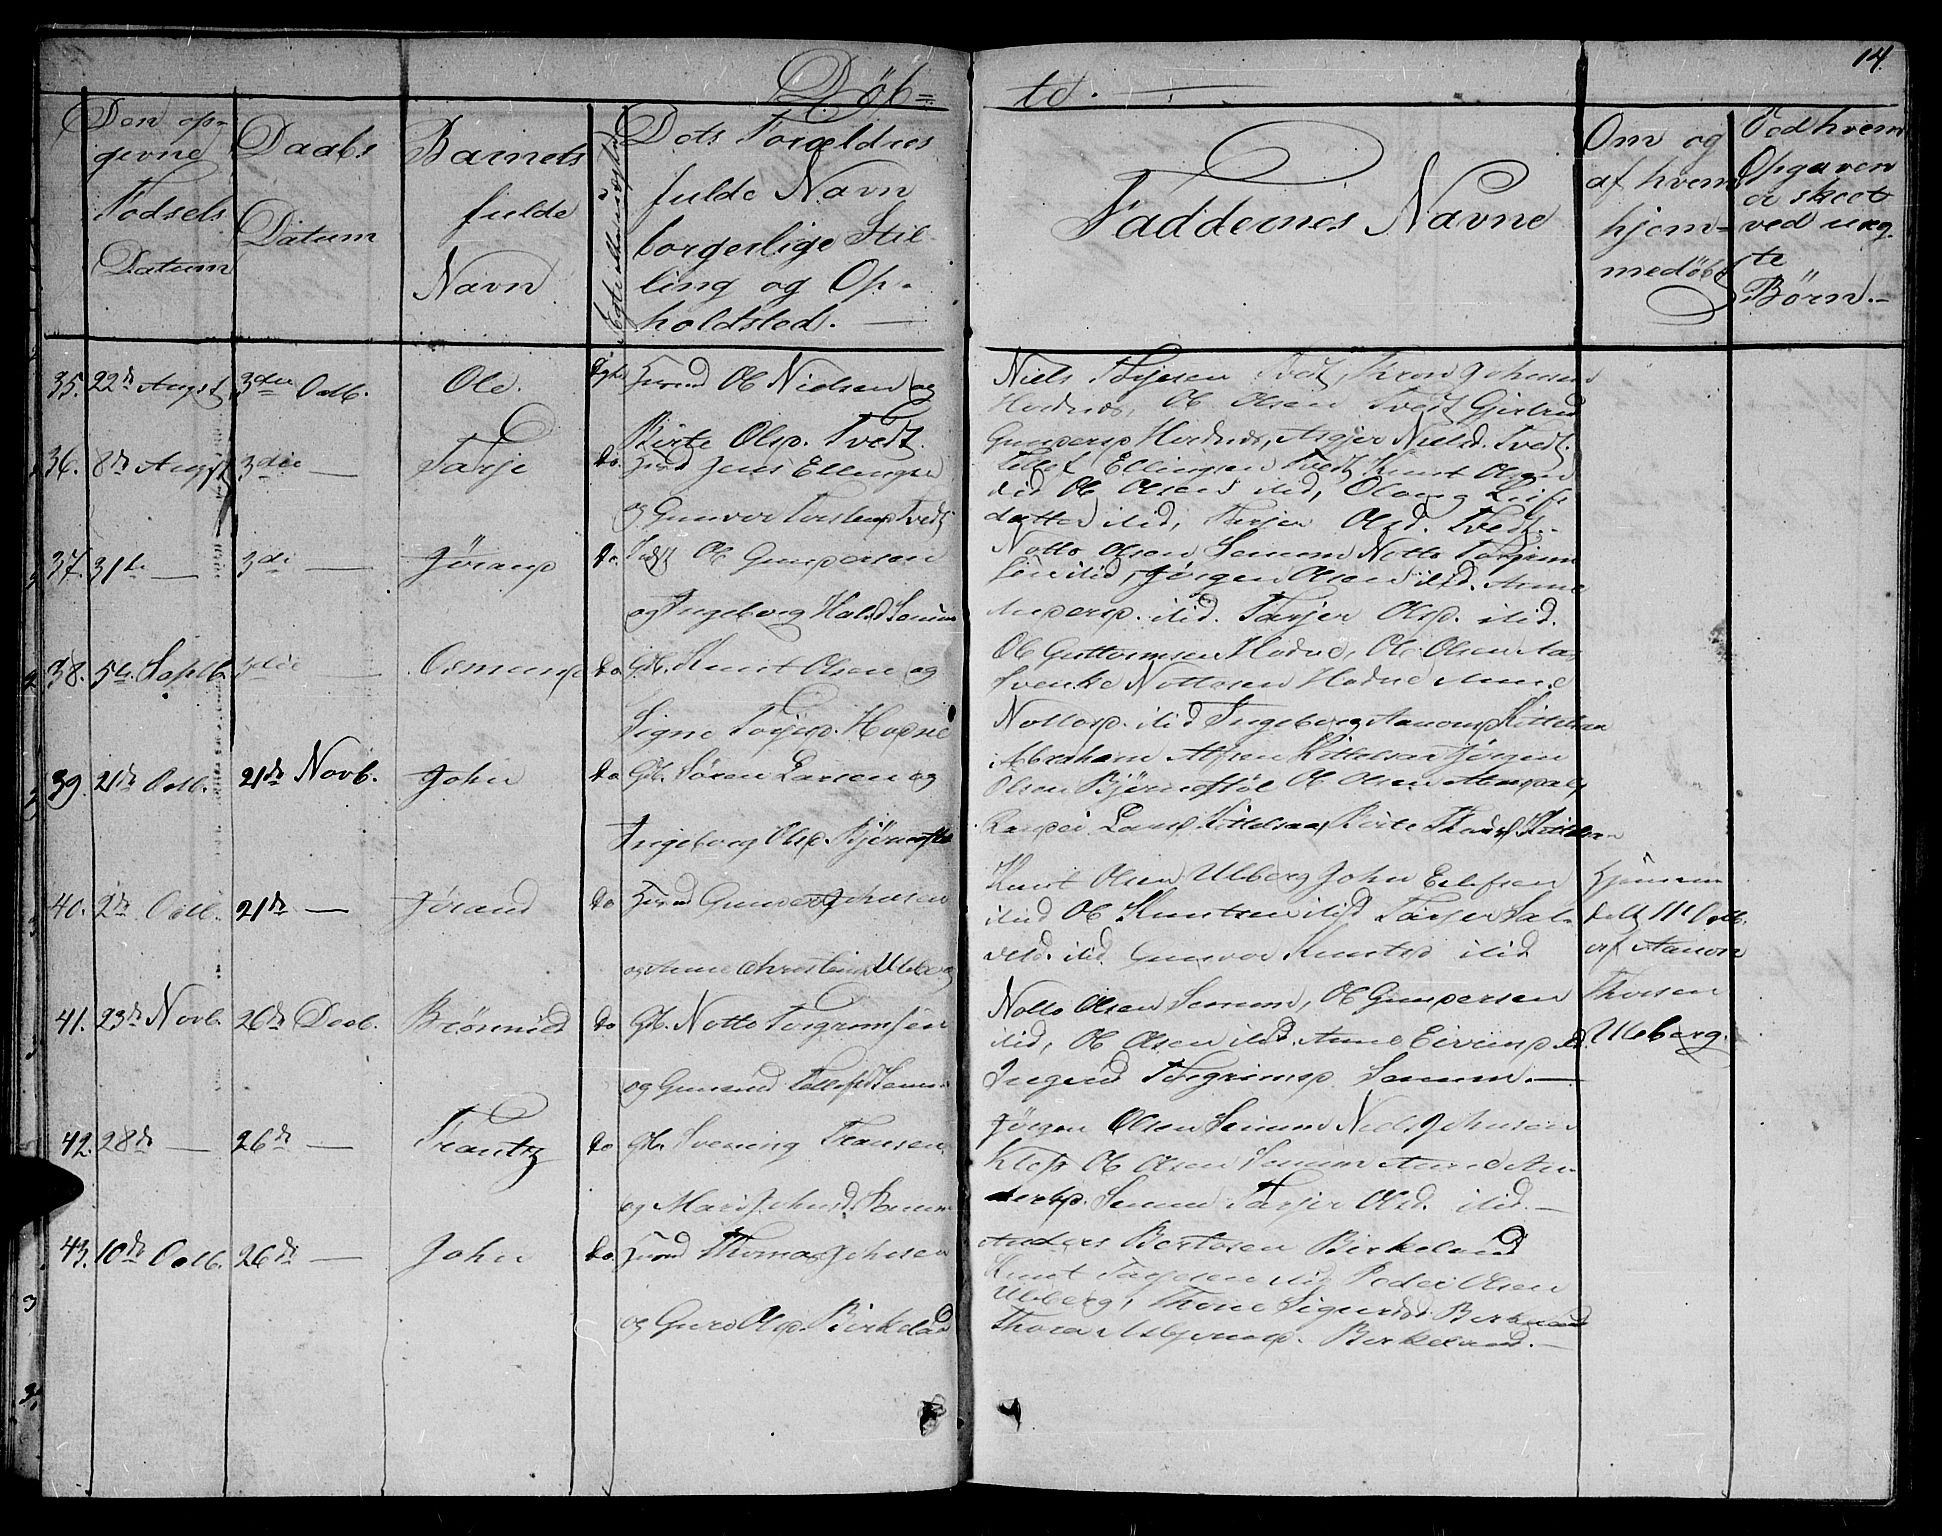 14.
Døb=
te.
Den op=
givne
Fødsels
Datum
Daabs
Datum
Barnets
fulde
Navn
Ægte eller uægte
Dets Forældres
fulde Navn
borgerlige Stil-
ling og Op-
holdsted.
Faddernes Navne
Om og
af hvem
hjem=
medøbt
Ved hvem
Opgaven
er skeet
ved uæg-
te
Børn.
35. 22de Augst 3die Octb. Ole. Ægte Ole Nielsen og
Birte Olsd. Tvedt
Niels Torjesen Tvedt, Thron Johnsen
Ole Olsen Tvedt Gjertrud
Gundersd Asger Nielsd. Tvedt.
36. 8de Augst 3die — Tarje do. Jens Ellingsen
og Gunvor Torstensd Tvedt
Tellef Ellingsen Tvedt Knut Olsen
Ole Olsen ibid, Olaug Leifs
datter ibid, Tarjer Olsd. Tvedt.
37. 31te — 3die — Jørand do. Ole Gundersen
og Ingeborg Senum
Notto Olsen Senum Notto Torgrim
sen ibid, Jørgen Olsen ibid. Anne
Andersd. ibid. Tarjer Olsd. ibid.
38. 5te Septb. 3die — Osmund do Gb. Knut Olsen og
Signe Torjusd. Hodne
Ole Guttormsen Hodne, Ole Olsen Aas
Svenke Nottosen Hodne Anne
Nottosd. ibid Ingeborg Aanonsd Kittelsaa
39. 21de Octb. 21de Novb. John do Gb. Søren Larsen og
Ingeborg Olsd. Bjørndstøl
Abraham Kittelsaa Jørgen
Olsen Bjørndstøl Ole Olsen
Larsd Kittelsaa, Birte Kittelsaa
40. 2de Octb. 21de — Jørand do Gunder Johnsen
og Anne Christine Uleberg
Knut Olsen Uleberg John Eilefsen
ibid Ole Knutsen ibid Tarjer Sal-
vesd. ibid. Gunvor Knutsd ibid
Hjemme
døbt 11te Octb.
af Aanon
Thorsen
Uleberg.
41. 23de Novb. 26de Decb. Brønnild do Gb. Notto Torgrimsen
og Gunnild Tellefsd Senum
Notto Olsen Senum, Ole Gundersen
ibid, Ole Olsen ibid. Anne Eivindsd ib.
Ingrid Torgrimsd Senum.—
42. 28de — 26de — Frantz do Gb. Svening Fransen
og Mari Johnsd. Senum
Jørgen Olsen Senum Niels Johnsen
Klep Ole Olsen Senum Anne An-
dersd. Senum Tarjer Olsd. ibid.—
43. 10de Octb. 26de — John do. Thomas Johnsen
og Guro Olsd. Birkeland
Anders Bertosen Birkeland
Knut Torjesen ibid Peder Olsen
Uleberg, Thone Sigurdsd. Birkeland
Thora Asbjørnsd. Birkeland.—